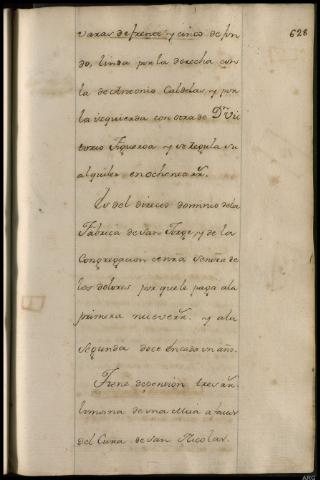 628
varas de frente y cinco de fon
do, linda por la derecha con
la de Antonio Caldelas, y por
la izquierda con otra de Dn. Vic
torio Figueroa y se regula su
alquiler en ochenta rr.
Es del directo dominio de la
Fabrica de San Jorge, y de la
Congregacion de nra Señora de
los dolores por que le paga a la
primera nueve rr. y a la
segunda doce en cada un año.
Tiene de pension tres rr.
limosna de una missa a favor
del Cura de San Nicolas.
ARG